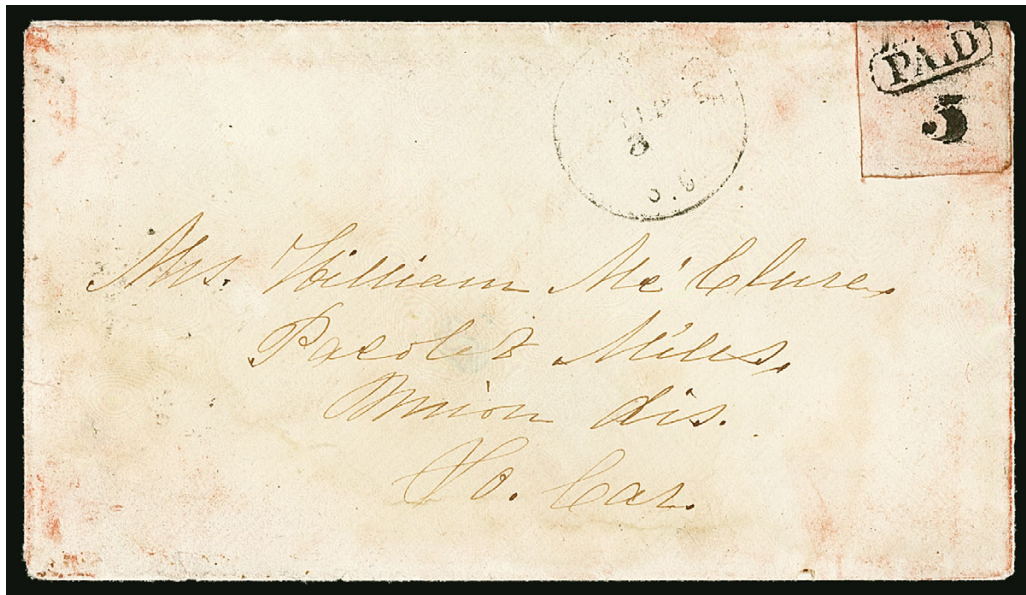 PAID
5
8
S. C
Mrs. William Mc Clure.
Pacolet Mills,
Union dis.
So. Car.